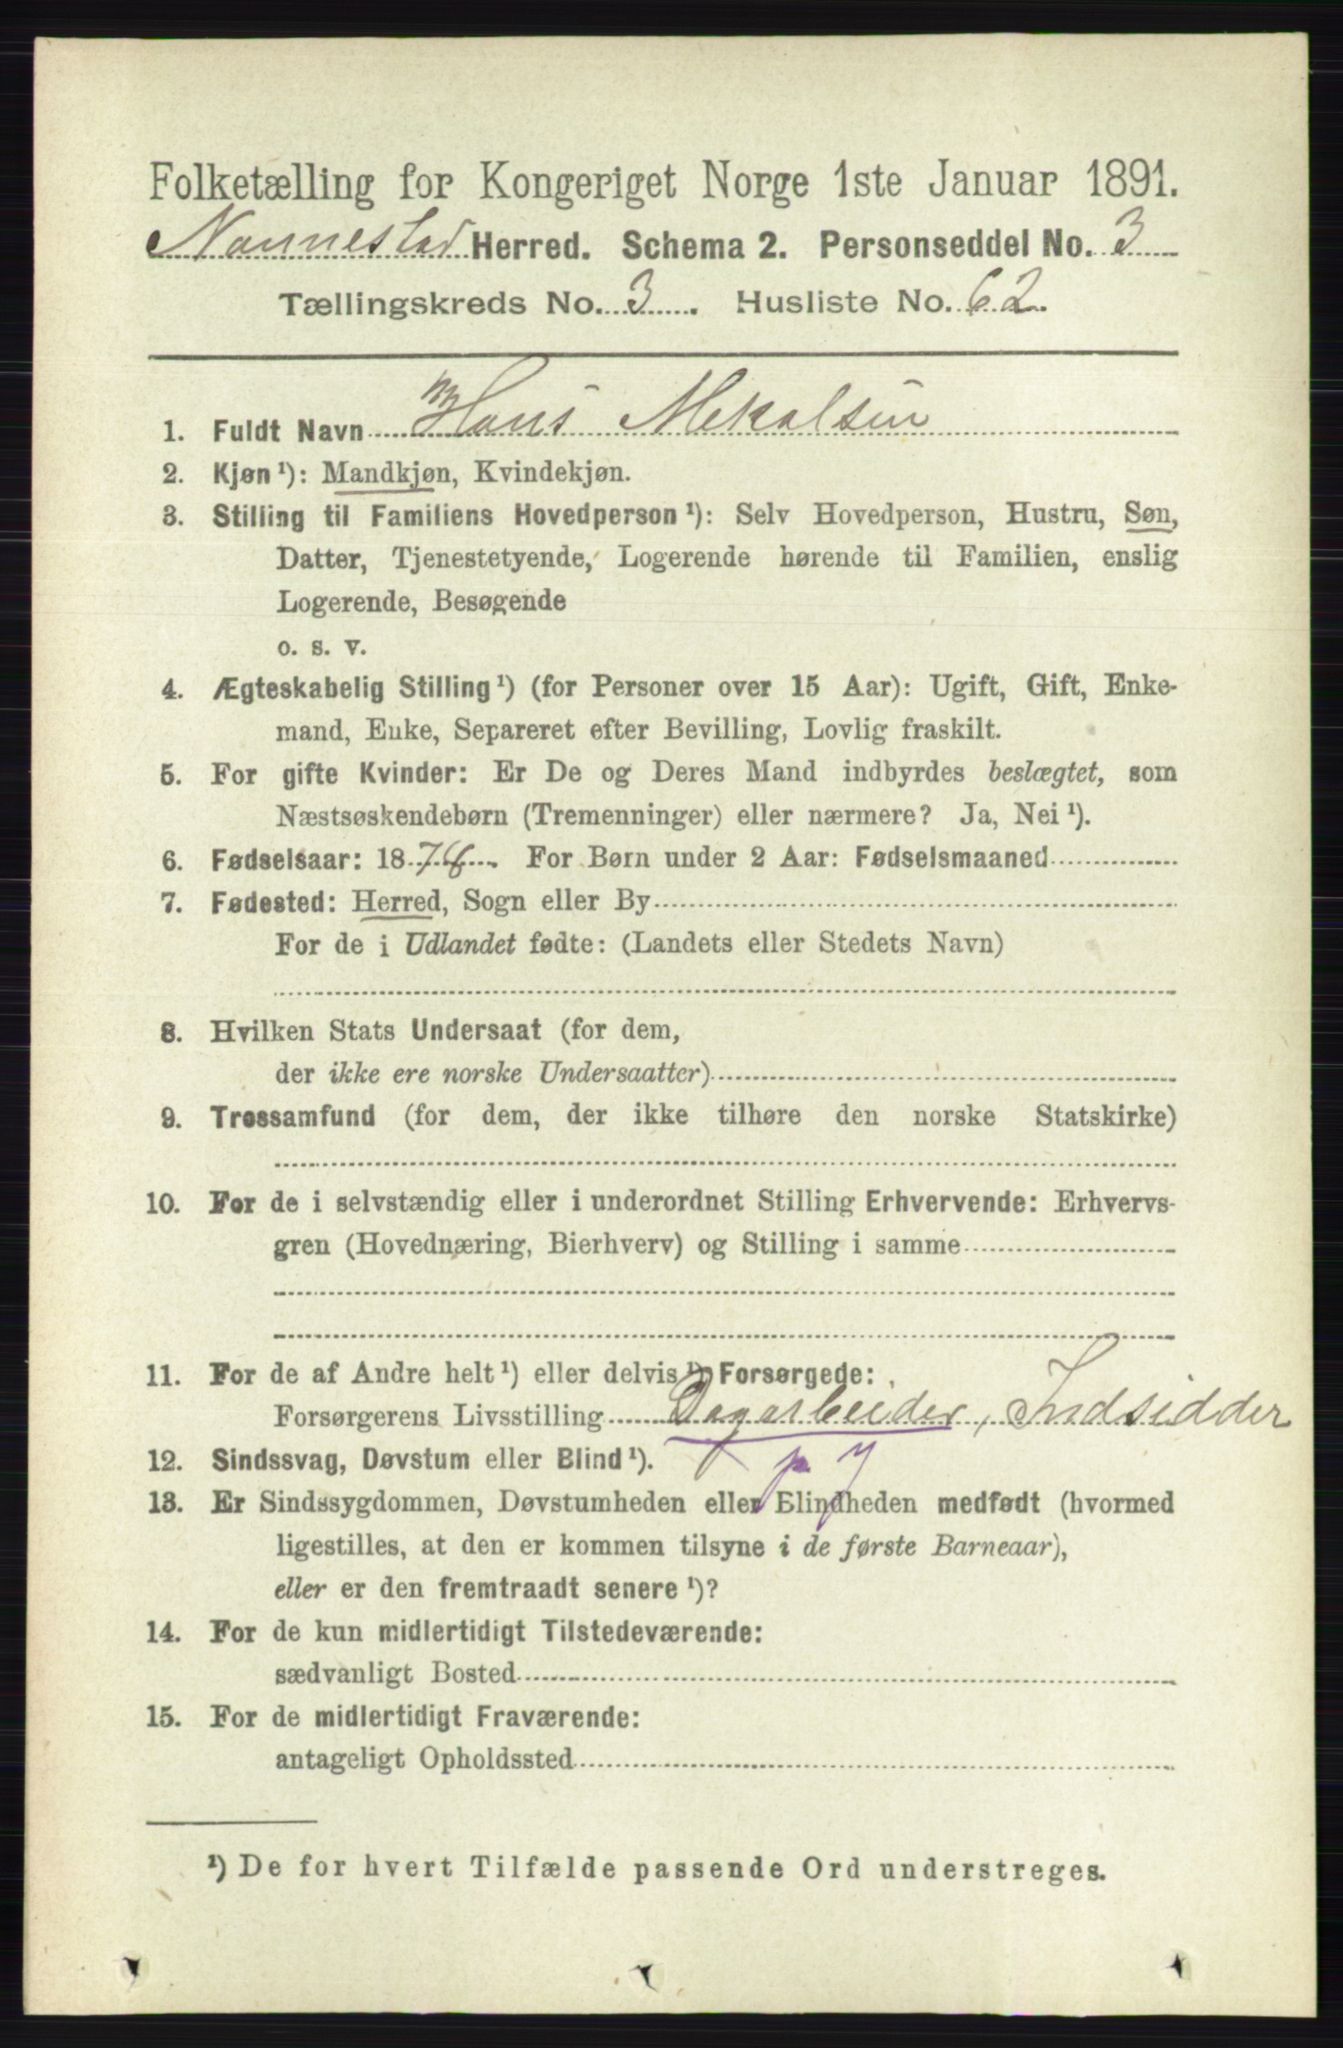 Folketælling for Kongeriget Norge 1ste Januar 1891.
Nannestad Herred. Schema 2. Personseddel No. 3
Tællingskreds No. 3. Husliste No. 62.
1. Fuldt Navn Hans Mekalsen
2. Kjøn ¹): Mandkjøn, Kvindekjøn.
3. Stilling til Familiens Hovedperson ¹): Selv Hovedperson, Hustru, Søn,
Datter, Tjenestetyende, Logerende hørende til Familien, enslig
Logerende, Besøgende
o. s. v.
4. Ægteskabelig Stilling ¹) (for Personer over 15 Aar): Ugift, Gift, Enke-
mand, Enke, Separeret efter Bevilling, Lovlig fraskilt.
5. For gifte Kvinder: Er De og Deres Mand indbyrdes beslægtet, som
Næstsøskendebørn (Tremenninger) eller nærmere? Ja, Nei ¹).
6. Fødselsaar: 18 For Børn under 2 Aar: Fødselsmaaned
7. Fødested: Herred, Sogn eller By
For de i Udlandet fødte: (Landets eller Stedets Navn)
8. Hvilken Stats Undersaat (for dem,
der ikke ere norske Undersaatter)
9. Trossamfund (for dem, der ikke tilhøre den norske Statskirke)
10. For de i selvstændig eller i underordnet Stilling Erhvervende: Erhvervs-
gren (Hovednæring, Bierhverv) og Stilling i samme
11. For de af Andre helt ¹) eller delvis ¹) Forsørgede:
Forsørgerens Livsstilling Dagarbeider, Indsidder
12. Sindssvag, Døvstum eller Blind ¹).
13. Er Sindssygdommen, Døvstumheden eller Blindheden medfødt (hvormed
ligestilles, at den er kommen tilsyne i de første Barneaar),
eller er den fremtraadt senere ¹)?
14. For de kun midlertidigt Tilstedeværende:
sædvanligt Bosted
15. For de midlertidigt Fraværende:
antageligt Opholdssted
¹) De for hvert Tilfælde passende Ord understreges.